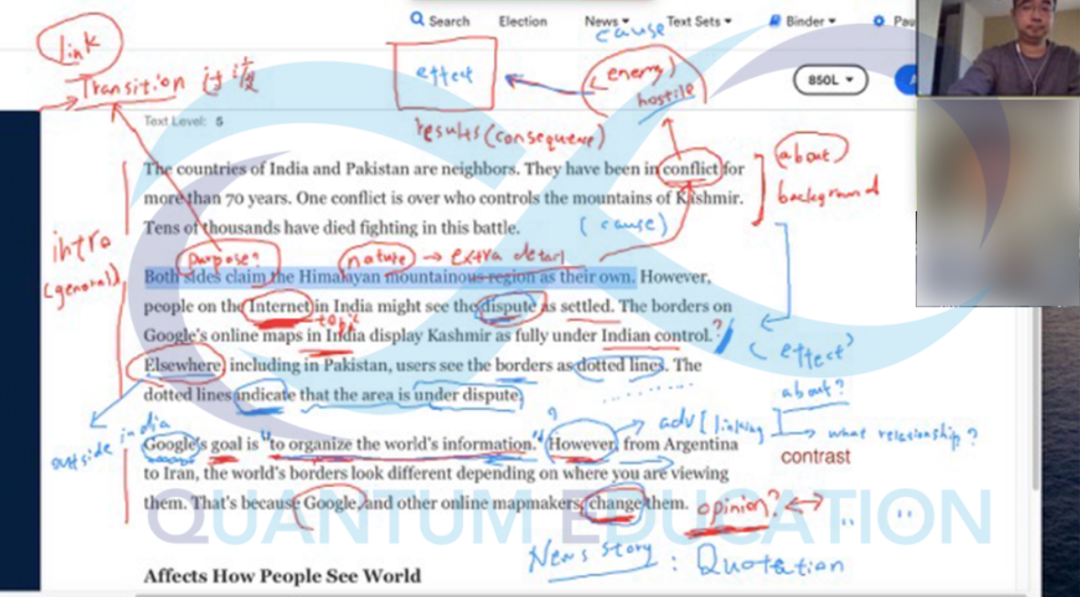 Search Election News Text Sets Binder
cause
link
Transition 过渡
effect
(enemy)
hostile
850L
results (consequence)
Text Level: 5
The countries of India and Pakistan are neighbors. They have been in conflict for
more than 70 years. One conflict is over who controls the mountains of Kashmir.
Tens of thousands have died fighting in this battle.
(about)
background
(cause)
intro
(general)
purpose?
nature → extra detail
Both sides claim the Himalayan mountainous region as their own. However,
people on the Internet in India might see the dispute as settled. The borders on
topic
Google's online maps in India display Kashmir as fully under Indian control.?
(effect)
Elsewhere, including in Pakistan, users see the borders as dotted lines. The
dotted lines indicate that the area is under dispute.
about?
outside india
?
adv [linking
what relationship?
contrast
Google's goal is "to organize the world's information." However, from Argentina
to Iran, the world's borders look different depending on where you are viewing
them. That's because Google, and other online mapmakers, change them.
opinion? ↔
QUANTUM EDUCATION
News story : Quotation
Affects How People See World